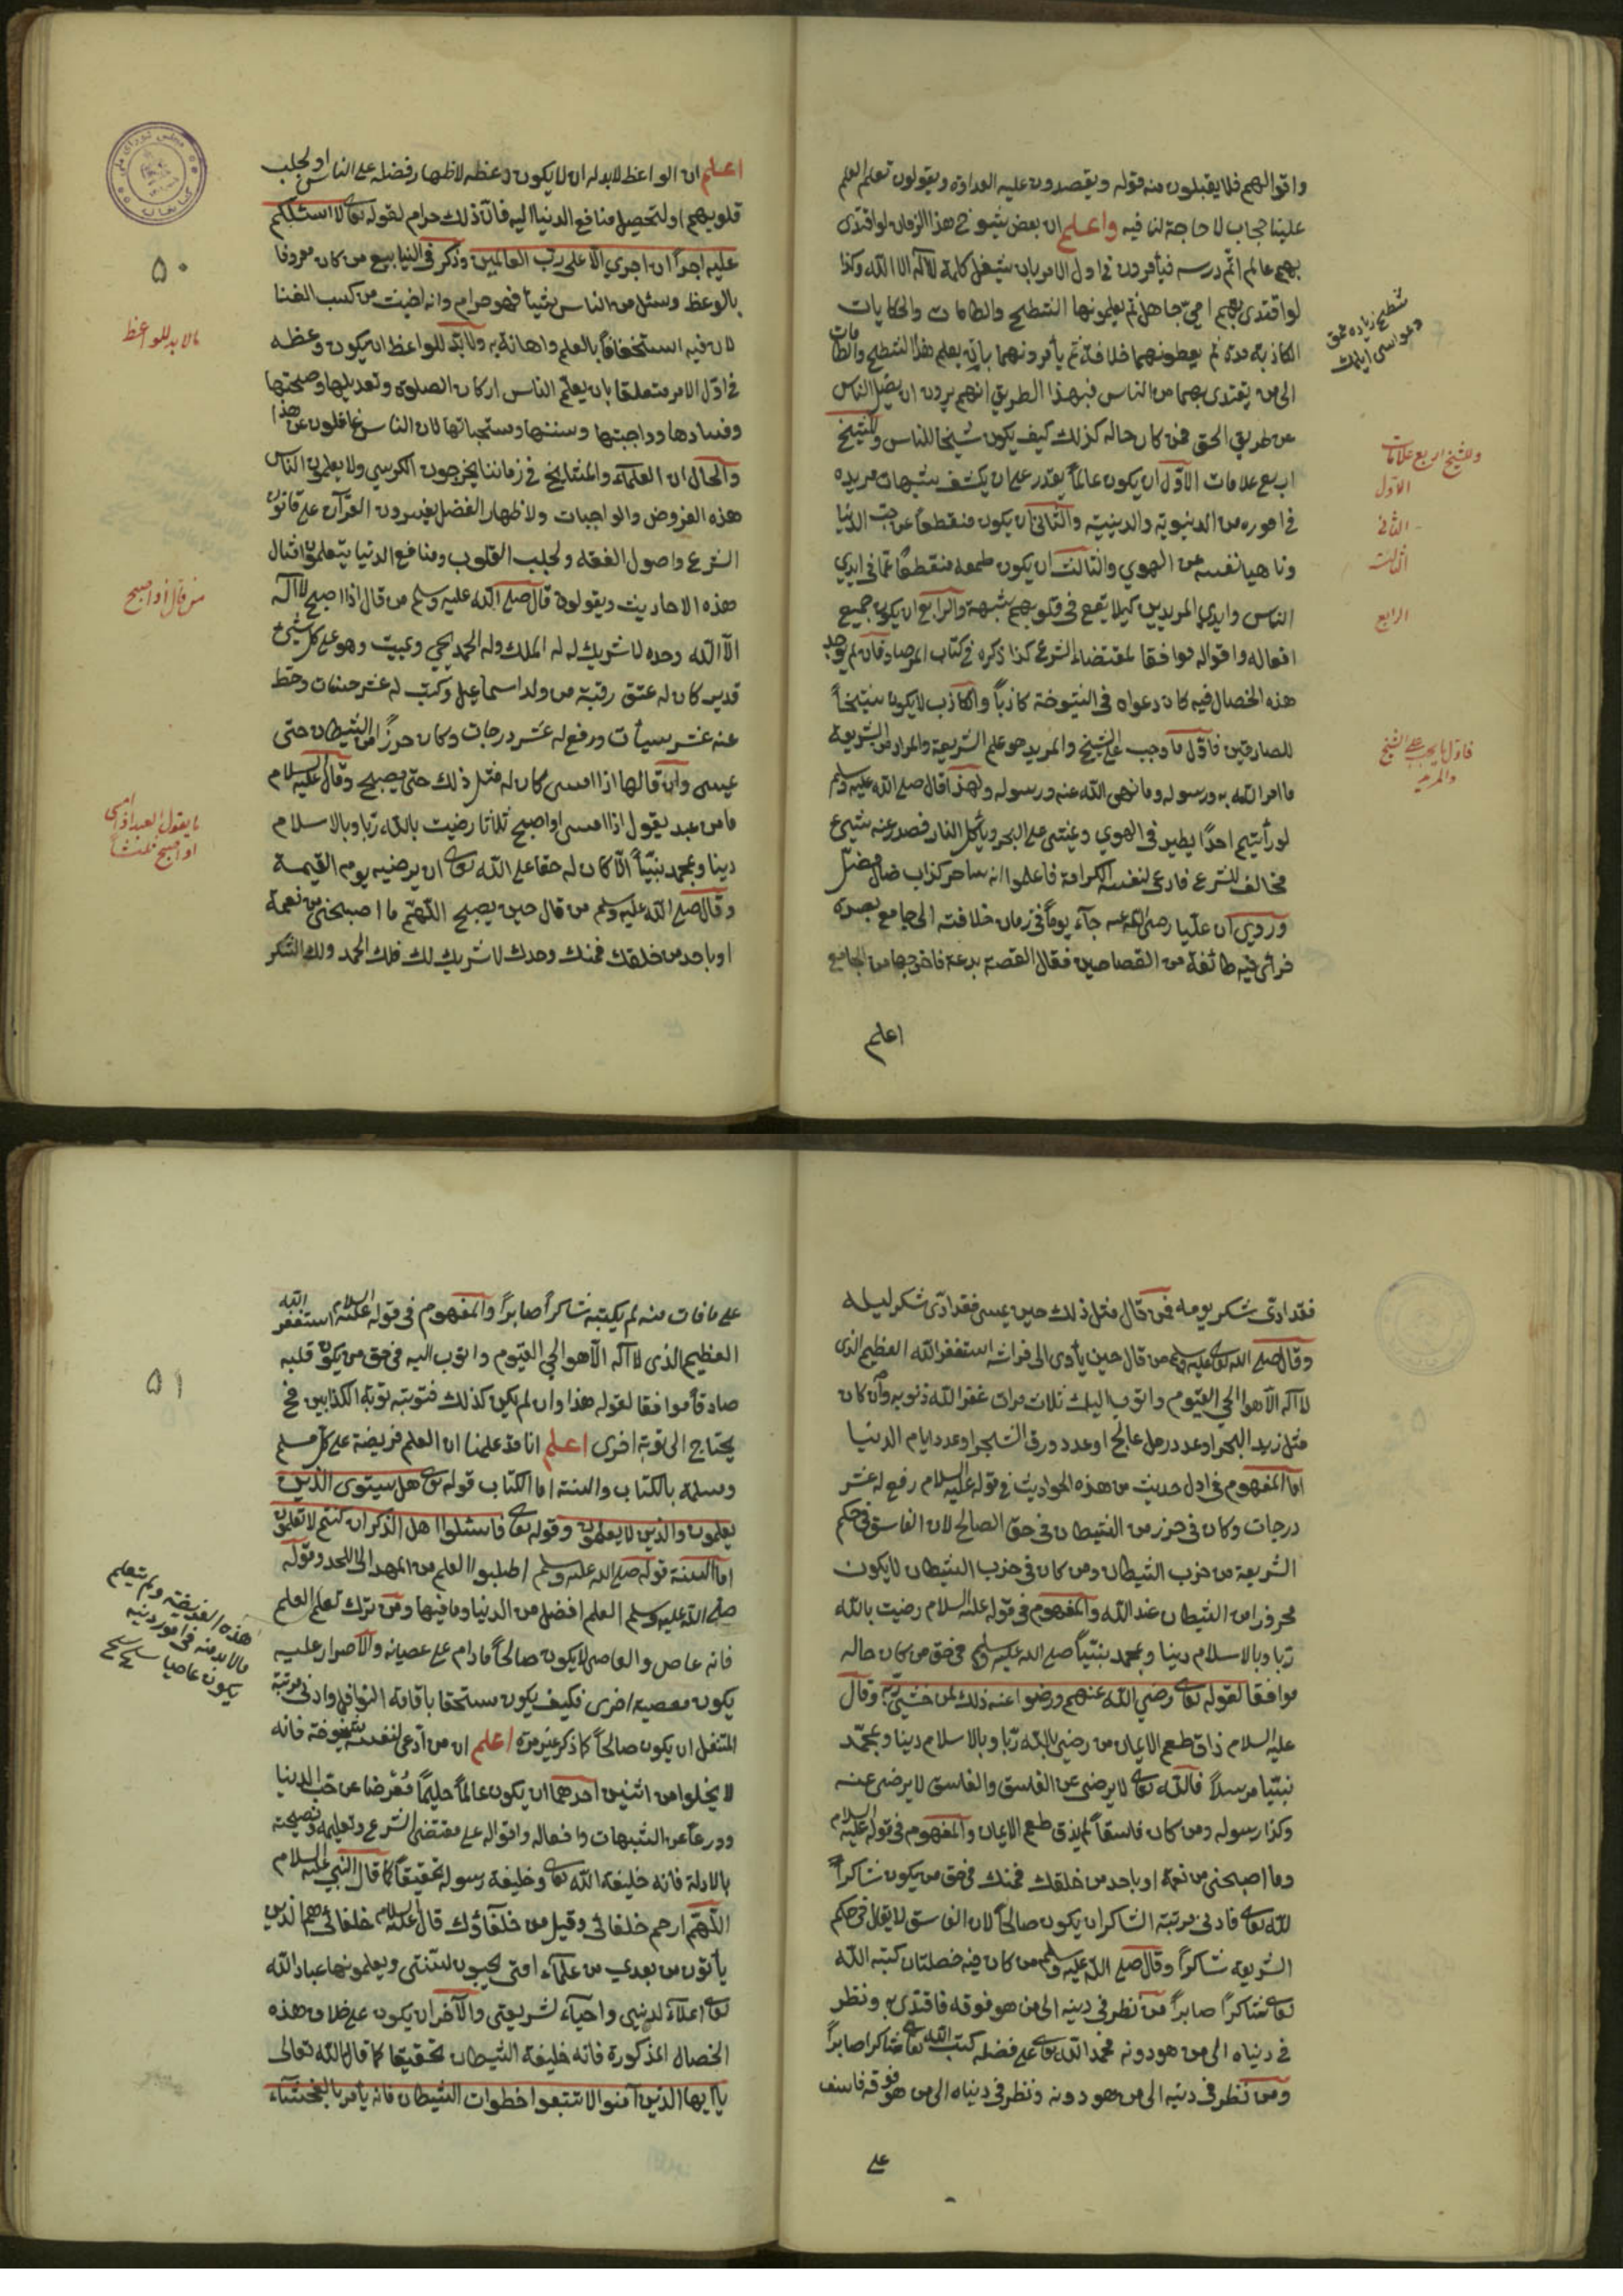 واقوالهم فلا يقبلون منه قوله ويقصدون عليه العداوة ويقولون تعلم العلم
علينا حجاب لا حاجة لنا فيه واعلم ان بعض شيوخ هذا الزمان لو اقتدى
بهم عالم اتم درسه فيأمرون في اول الامر بان يشغل كلمة لا اله الا الله وكذا
لو اقتدى بهم امي جاهل ثم يعلمونها الشطح والطامات والحكايات
الكاذبة مدة ثم يعطونهما خلافة ثم يأمرونهما بانه يعلم هذا الشطح والطامات
الى من يقتدى بهما من الناس فبهذا الطريق انهم يريدون ان يضل الناس
عن طريق الحق فمن كان حاله كذلك كيف يكون شيخا للناس وللشيخ
اربع علامات الاول ان يكون عالماً يقدر على ان يكشف شبهات مريده
في اموره من الدنيوية والدينية والثاني ان يكون منقطعاً عن حب الدنيا
وناهيا نفسه عن الهوي والثالث ان يكون طمعه منقطعاً عما في ايدي
الناس وايدي المريدين كيلا يقع في قلوبهم شبهة والرابع ان يكون جميع
افعاله واقواله موافقا لمقتضاء الشرع كذا ذكره في كتاب المرصاد فان لم يوجد
هذه الخصال فيه كان دعواه في الشيوخة كاذباً والكاذب لا يكون شيخاً
للصادقين فاول ما وجب على الشيخ والمريد هو علم الشريعة والمراد من الشريعة
ما امر الله به ورسوله وما نهى الله عنه ورسوله ولهذا قال صلى الله عليه وسلم
لو رأيتم احدًا يطير في الهوي ويمشي على البحر ويأكل النار فصدر عنه شيئ
مخالف للشرع فادعى لنفسه الكرامة فاعلموا انه ساحر كذاب ضال مضل
وروي ان عليا رضى الله عنه جاء يوماً في زمان خلافته الى جامع بصره
فرأى فيه طائفة من القصاصين فقال القصة بدعة فاخرجها من الجامع
اعلم
شطح زياده حمق
وللشيخ اربع علامات
الاول
الثاني
الثالث
الرابع
فاول ما يجب على الشيخ
والمريد
اعلم ان الواعظ لا بد له ان لا يكون وعظه لاظهار فضله على الناس او لجلب
قلوبهم او لتحصيل منافع الدنيا اليه فان ذلك حرام لقوله تعالى لا اسئلكم
عليه اجراً ان اجري الا على رب العالمين وذكر في الينابيع من كان معروفا
بالوعظ وسئل من الناس شيئا فهو حرام وانه اخبث من كسب الغنا
لان فيه استخفافاً بالعلم واهانة به ولا بد للواعظ ان يكون وعظه
في اول الامر متعلقا بان يعلم الناس اركان الصلوة وتعديلها وصحتها
وفسادها وواجبتها وسننها ومستحباتها لان الناس غافلون عن هذا
والحال ان العلماء والمشايخ في زماننا يخرجون الكرسي ولا يعلمون الناس
هذه الفروض والواجبات ولاظهار الفضل يفسرون القرآن على قانون
الشرع واصول الفقه ولجلب القلوب ومنافع الدنيا يتعلمون امثال
هذه الاحاديث ويقولون قال صلى الله عليه وسلم من قال اذا اصبح لا اله
الا الله وحده لا شريك له له الملك وله الحمد يحيي ويميت وهو على كل شيئ
قدير كان له عتق رقبة من ولد اسماعيل وكتب له عشر حسنات وحط
عنه عشر سيأت ورفع له عشر درجات وكان حرزًا من الشيطان حتى
يمسى وان قالها اذا امسى كان له مثل ذلك حتى يصبح وقال عليه السلام
ما من عبد يقول اذا امسى او اصبح ثلاثا رضيت بالله ربا وبالاسلام
دينا وبمحمد نبيّاً الا كان له حقا على الله تعالى ان يرضيه يوم القيمة
وقال صلى الله عليه وسلم من قال حين يصبح اللهم ما اصبحني من نعمة
او باحد من خلقك فمنك وحدك لا شريك لك فلك الحمد ولك الشكر
٥٠
مالا بد للواعظ
من قال اذا اصبح
ما يقول العبد اذا امسى
او اصبح ثلثاً
فقد ادى شكر يومه فمن قال مثل ذلك حين يمسى فقد ادى شكر ليله
وقال صلى الله تعالى عليه وسلم من قال حين يأوى الى فراشه استغفر الله العظيم الذى
لا اله الا هو الحي القيوم واتوب اليك ثلاث مرات غفر الله ذنوبه وان كان
مثل زبد البحر او عدد رمل عالج او عدد ورق الشجر او عدد ايام الدنيا
اما المفهوم في اول حديث من هذه الحواديث في قوله عليه السلام رفع له عشر
درجات وكان في حرز من الشيطان في حق الصالح لان الفاسق في حكم
الشريعة من حزب الشيطان ومن كان في حزب الشيطان لا يكون
محروزا من الشيطان عند الله والمفهوم في قوله عليه السلام رضيت بالله
ربا وبالاسلام دينا وبمحمد نبيّاً صلى الله عليه وسلم في حق من كان حاله
موافقا لقوله تعالى رضي الله عنهم ورضوا عنه ذلك لمن خشي ربه وقال
عليه السلام ذاق طعم الايمان من رضي بالله ربّا وبالاسلام دينا وبمحمّد
نبيّا مرسلاً فالله تعالى لا يرضى عن الفاسق والفاسق لا يرضى عنه
وكذا رسوله ومن كان فاسقاً لم يذق طعم الايمان والمفهوم في قوله عليه السلام
وما اصبحني من نعمة او باحد من خلقك فمنك في حق من يكون شاكراً
لله تعالى فادنى مرتبة الشاكر ان يكون صالحاً لان الفاسق لا يقال في حكم
الشريعة شاكراً وقال صلى الله عليه وسلم من كان فيه خصلتان كتبه الله
تعالى شاكراً صابراً من نظر في دينه الى من هو فوقه فاقتدى به ونظر
في دنياه الى من هو دونه فحمد الله تعالى على فضله كتبه الله تعالى شاكرا صابراً
ومن نظر في دينه الى من هو دونه ونظر في دنياه الى من هو فوقه فاسف
على
على ما فات منه لم يكتبه شاكراً صابراً والمفهوم في قوله عليه السلام استغفر الله
العظيم الذى لا اله الا هو الحي القيوم واتوب اليه في حق من يكون قلبه
صادقاً موافقا لقوله هذا وان لم يكن كذلك فتوبته توبة الكذابين فح
يحتاج الى توبة اخرى اعلم انا قد علمنا ان العلم فريضة على كل مسلم
ومسلمة بالكتاب والسنة اما الكتاب قوله تعالى هل يستوى الذين
يعلمون والذين لا يعلمون وقوله تعالى فاسئلوا اهل الذكر ان كنتم لا تعلمون
اما السنة قوله صلى الله عليه وسلم اطلبوا العلم من المهد الى اللحد وقوله
صلى الله عليه وسلم العلم افضل من الدنيا وما فيها ومن ترك تعلم العلم
فانه عاص والعاصى لا يكون صالحاً مادام على عصيانه والاصرار عليه
يكون معصية اخرى فكيف يكون مستحقا باقامة النوافل وادنى مرتبة
المتنفل ان يكون صالحاً كما ذكر غير مرة اعلم ان من ادعى لنفسه شيوخة فانه
لا يخلوا من اثنين احدهما ان يكون عالماً حليماً مُعْرضا عن حب الدنيا
وورعاً عن الشبهات وافعاله واقواله على مقتضى الشرع وتعليمه ونصيحته
بالادلة فانه خليفة الله تعالى وخليفة رسوله تحقيقاً كما قال النبي عليه السلام
اللهم ارحم خلفائى وقيل من خلفاؤك قال عليه السلام خلفائى هم الذين
يأتون من بعدي من علماء امتى يحيون لسنتى ويعلمونها عباد الله
تعالى اعلاء لدينى واحياء لشريعتى والآخر ان يكون على خلاف هذه
الخصال المذكورة فانه خليفة الشيطان تحقيقا كما قال الله تعالى
يا ايها الذين آمنوا لا تتبعوا خطوات الشيطان فانه يأمر بالفحشاء
٥١
هذه الفريضة ولم يتعلم
مالا بد منه في امور دينه
يكون عاصيا